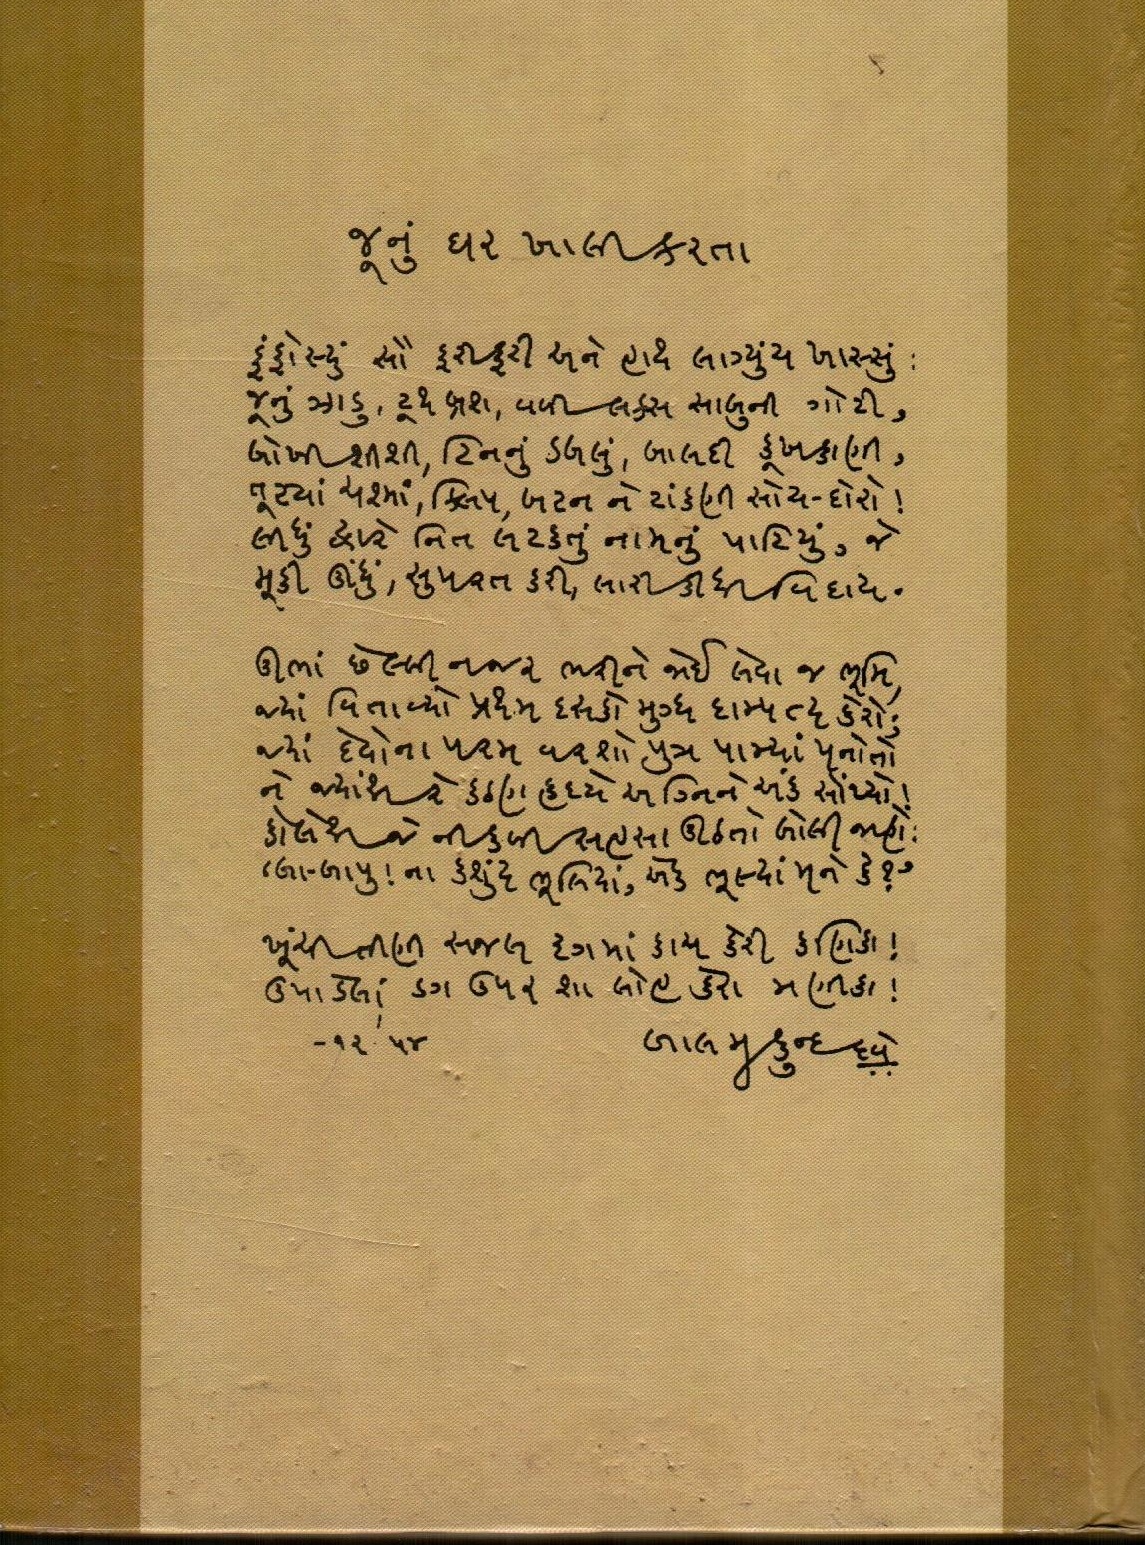 જૂનું ઘર ખાલી કરતા
ફંફોસ્યું સૌ ફરી ફરી અને હાથ લાગ્યુંય ખાસ્સું :
જૂનું ઝાડુ, ટૂથ બ્રશ, વળી લક્સ સાબુની ગોટી,
બોખી શીશી, ટિનનું ડબલું, બાલદી કૂખકાણી,
તૂટ્યાં ચશ્માં, ક્લિપ, બટન ને ટાંકણી સોય-દોરો !
લીધું દ્વારે નિત લટકતું નામનું પાટિયું, જે
મૂકી ઊંધું, સુપરત કરી, લારી કીધી વિદાય.
ઊભાં છેલ્લી નજર ભરીને જોઈ લેવા જ ભૂમિ,
જ્યાં વિતાવ્યો પ્રથમ દસકો મુગ્ધ દામ્પત્ય કેરો;
જ્યાં દેવોના પરમ વરશો પુત્ર પામ્યાં પનોતો
ને જ્યાંથી રે કઠણ હૃદયે અગ્નિને અંક સોંપ્યો !
કોલેથી જે નીકળી સહસા ઊઠતો બોલી જાણે :
‘બા-બાપુ ! ના કશુંય ભૂલિયાં, એક ભૂલ્યાં મને કે ?’
ખૂંચી તીણી સજલ દગમાં કાચ કેરી કણિકા !
ઉપાડેલાં ડગ ઉપર શા લોહ કેરા મણીકા !
-૧૨' ૫૪ બાલમુકુન્દ દવે